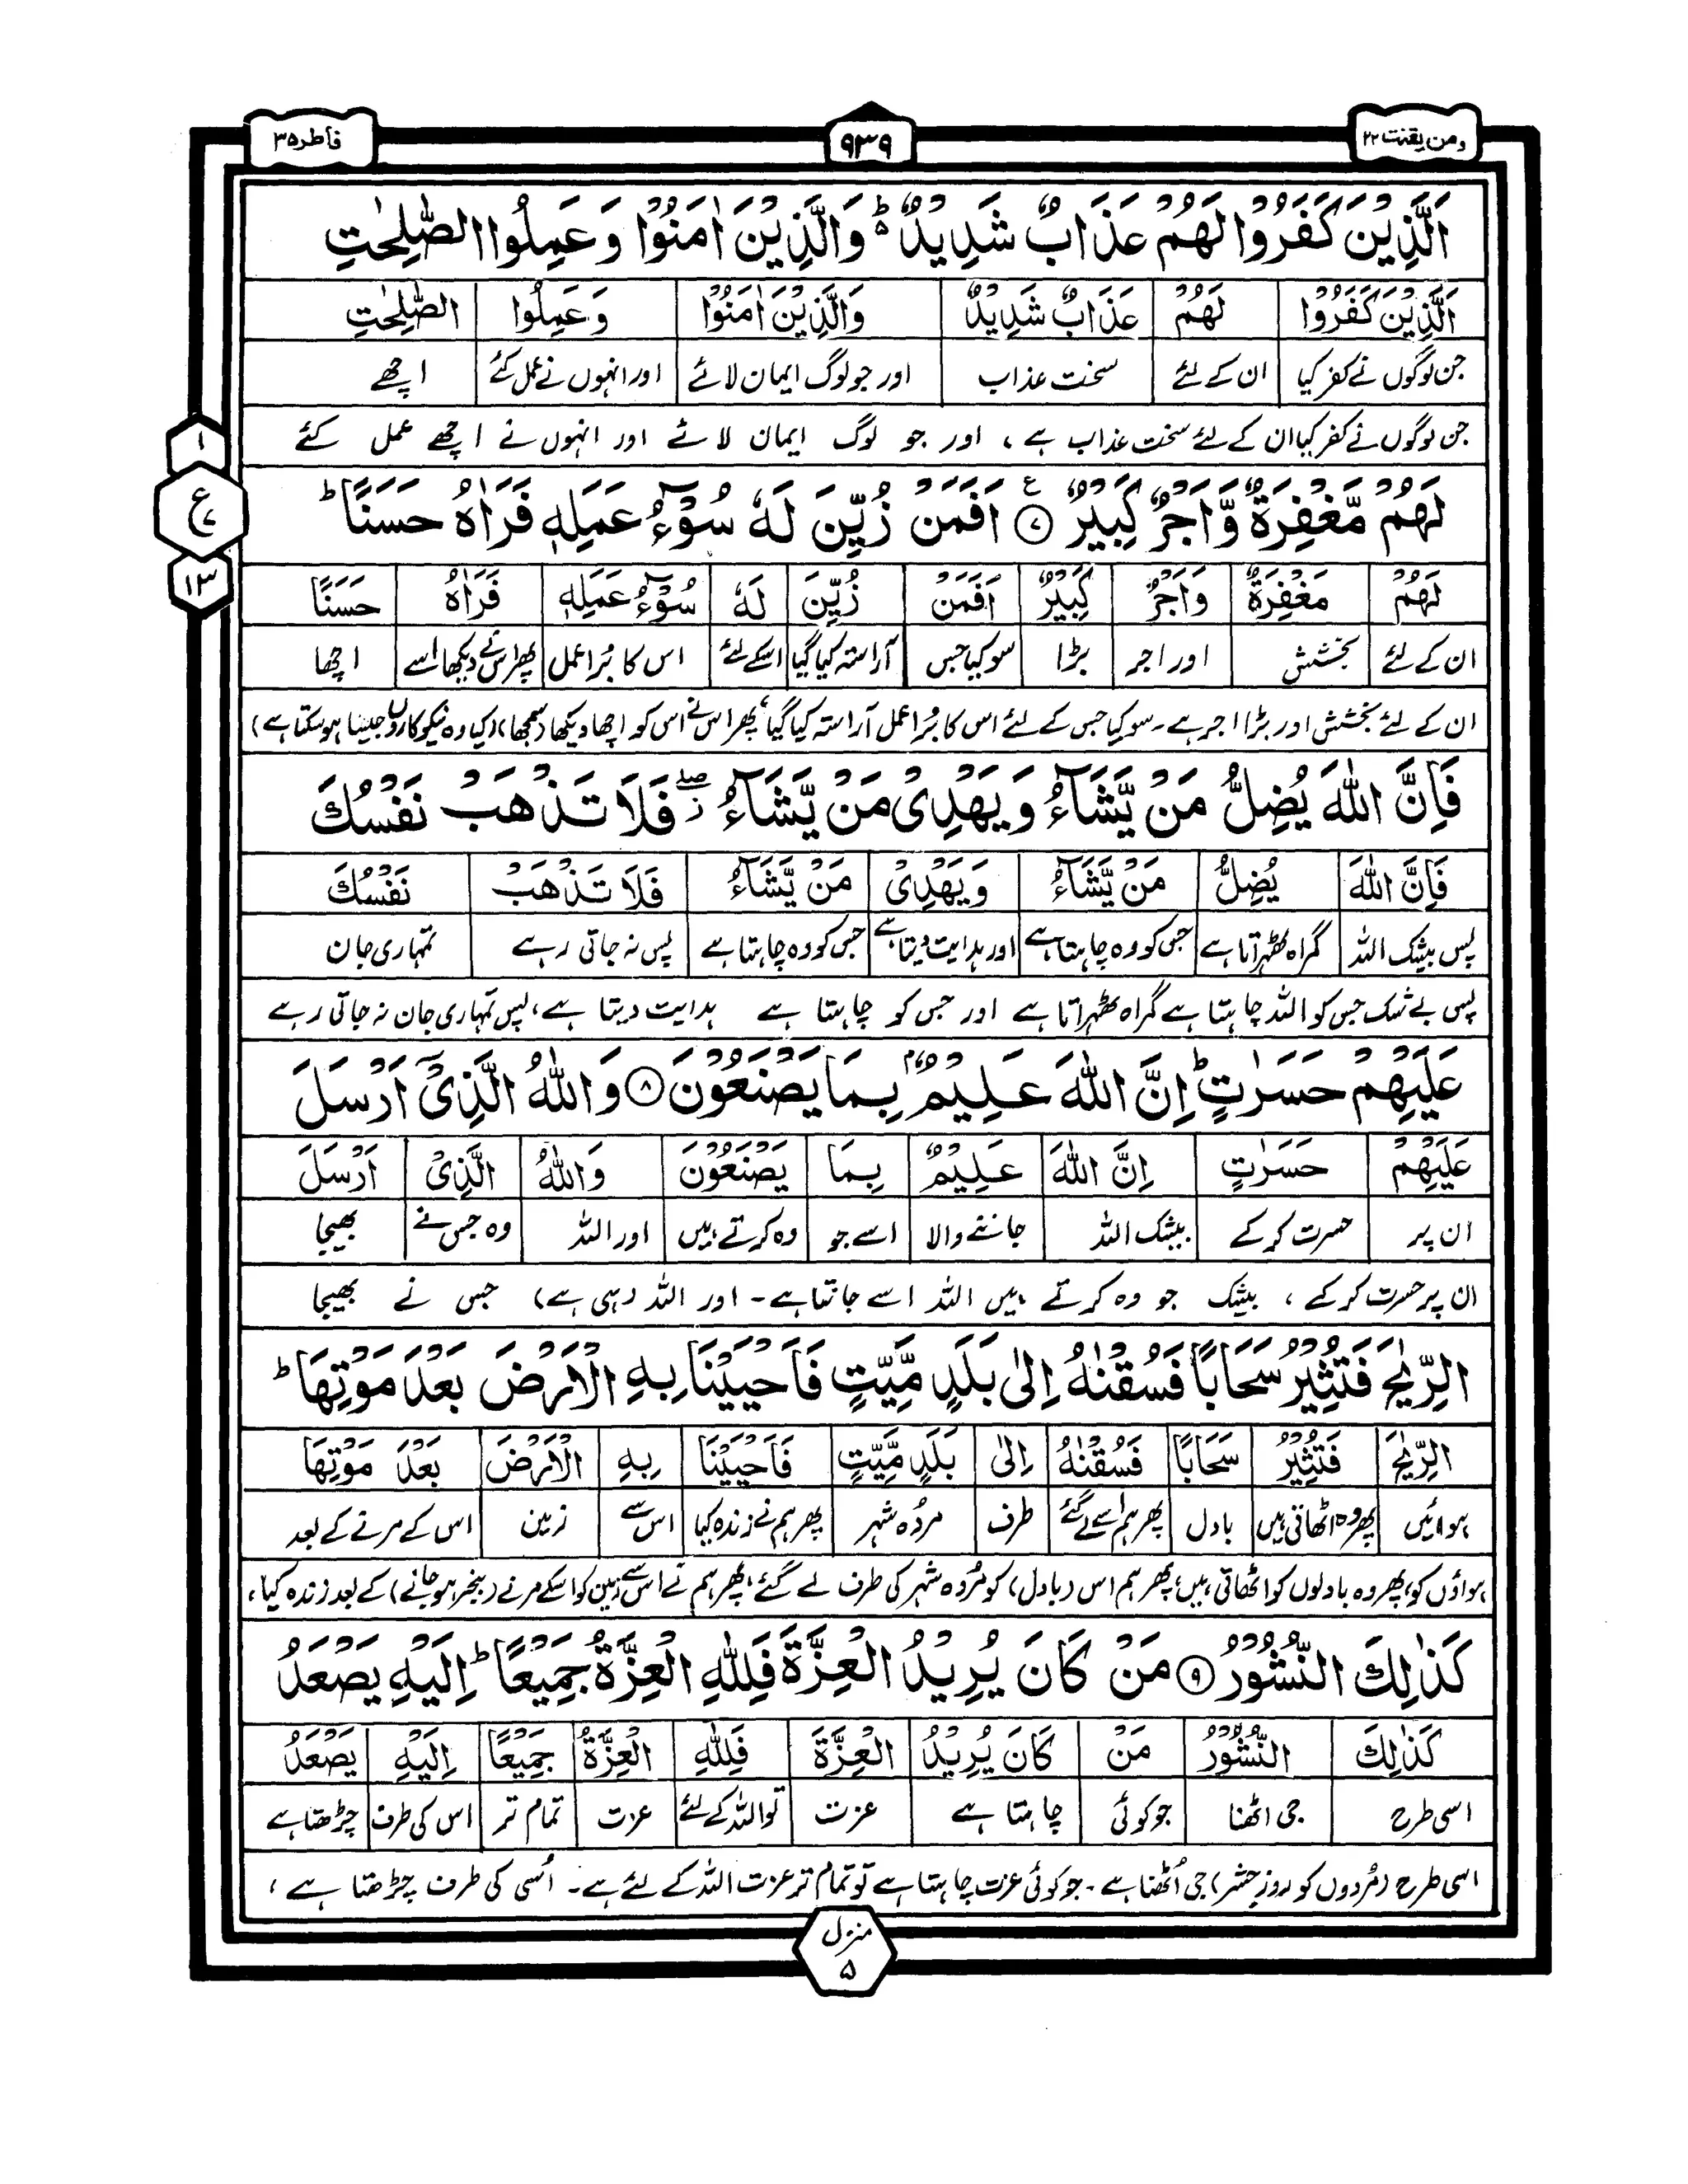 ومن یقنت ۲۲
۹۳۹
فاطر ۳۵
اَلَّذِيْنَ كَفَرُوْا لَهُمْ عَذَابٌ شَدِيْدٌ ؕ۬ وَالَّذِيْنَ اٰمَنُوْا وَعَمِلُوا الصّٰلِحٰتِ
اَلَّذِيْنَ كَفَرُوْا لَهُمْ عَذَابٌ شَدِيْدٌ وَالَّذِيْنَ اٰمَنُوْا وَعَمِلُوا الصّٰلِحٰتِ
جن لوگوں نے کفر کیا ان کے لئے سخت عذاب اور جو لوگ ایمان لائے اور انہوں نے عمل کئے اچھے
جن لوگوں نے کفر کیا ان کے لئے سخت عذاب ہے، اور جو لوگ ایمان لائے اور انہوں نے اچھے عمل کئے
۱
ع
۷
۱۳
لَهُمْ مَّغْفِرَةٌ وَّاَجْرٌ كَبِيْرٌ ۷ اَفَمَنْ زُيِّنَ لَهٗ سُوْٓءُ عَمَلِهٖ فَرَاٰهُ حَسَنًا ؕ
لَهُمْ مَغْفِرَةٌ وَاَجْرٌ كَبِيْرٌ اَفَمَنْ زُيِّنَ لَهٗ سُوْٓءُ عَمَلِهٖ فَرَاٰهُ حَسَنًا
ان کے لئے بخشش اور اجر بڑا سو کیا جس آراستہ کیا گیا اسکے لئے اس کا بُرا عمل پھر اس نے دیکھا اسے اچھا
ان کے لئے بخشش اور بڑا اجر ہے۔ سو کیا جس کے لئے اس کا بُرا عمل آراستہ کیا گیا، پھر اس نے اس کو اچھا دیکھا (سمجھا) (کیا وہ نیکوکاروں جیسا ہو سکتا ہے)
فَاِنَّ اللّٰهَ يُضِلُّ مَنْ يَّشَآءُ وَيَهْدِىْ مَنْ يَّشَآءُ ۖ ز فَلَا تَذْهَبْ نَفْسُكَ
فَاِنَّ اللّٰهَ يُضِلُّ مَنْ يَّشَآءُ وَيَهْدِىْ مَنْ يَّشَآءُ فَلَا تَذْهَبْ نَفْسُكَ
پس بیشک اللہ گمراہ ٹھہراتا ہے جس کو وہ چاہتا ہے اور ہدایت دیتا ہے جس کو وہ چاہتا ہے پس نہ جاتی رہے تمہاری جان
پس بے شک جس کو اللہ چاہتا ہے گمراہ ٹھہراتا ہے اور جس کو چاہتا ہے ہدایت دیتا ہے، پس تمہاری جان نہ جاتی رہے
عَلَيْهِمْ حَسَرٰتٍ ؕ اِنَّ اللّٰهَ عَلِيْمٌۢ بِمَا يَصْنَعُوْنَ ۸ وَاللّٰهُ الَّذِىْٓ اَرْسَلَ
عَلَيْهِمْ حَسَرٰتٍ اِنَّ اللّٰهَ عَلِيْمٌ بِمَا يَصْنَعُوْنَ وَاللّٰهُ الَّذِىْ اَرْسَلَ
ان پر حسرت کر کے بیشک اللہ جاننے والا اسے جو وہ کرتے ہیں اور اللہ وہ جس نے بھیجا
ان پر حسرت کر کے، بیشک جو وہ کرتے ہیں اللہ اسے جانتا ہے۔ اور اللہ (وہی ہے) جس نے بھیجا
الرِّيٰحَ فَتُثِيْرُ سَحَابًا فَسُقْنٰهُ اِلٰى بَلَدٍ مَّيِّتٍ فَاَحْيَيْنَا بِهِ الْاَرْضَ بَعْدَ مَوْتِهَا ؕ
الرِّيٰحَ فَتُثِيْرُ سَحَابًا فَسُقْنٰهُ اِلٰى بَلَدٍ مَّيِّتٍ فَاَحْيَيْنَا بِهِ الْاَرْضَ بَعْدَ مَوْتِهَا
ہوائیں پھر وہ اٹھاتی ہیں بادل پھر ہم اسے لے گئے طرف مردہ شہر پھر ہم نے زندہ کیا اس سے زمین اس کے مرنے کے بعد
ہواؤں کو، پھر وہ بادلوں کو اٹھاتی ہیں، پھر ہم اس (بادل) کو مُردہ شہر کی طرف لے گئے، پھر ہم نے اس سے زمین کو اسکے مرنے (بنجر ہو جانے) کے بعد زندہ کیا،
كَذٰلِكَ النُّشُوْرُ ۹ مَنْ كَانَ يُرِيْدُ الْعِزَّةَ فَلِلّٰهِ الْعِزَّةُ جَمِيْعًا ؕ اِلَيْهِ يَصْعَدُ
كَذٰلِكَ النُّشُوْرُ مَنْ كَانَ يُرِيْدُ الْعِزَّةَ فَلِلّٰهِ الْعِزَّةُ جَمِيْعًا اِلَيْهِ يَصْعَدُ
اسی طرح جی اٹھنا جو کوئی چاہتا ہے عزت تو اللہ کے لئے عزت تمام تر اس کی طرف چڑھتا ہے
اسی طرح (مُردوں کو روزِ حشر) جی اُٹھنا ہے۔ جو کوئی عزت چاہتا ہے تو تمام تر عزت اللہ کے لئے ہے۔ اُسی کی طرف چڑھتا ہے،
منزل
۵